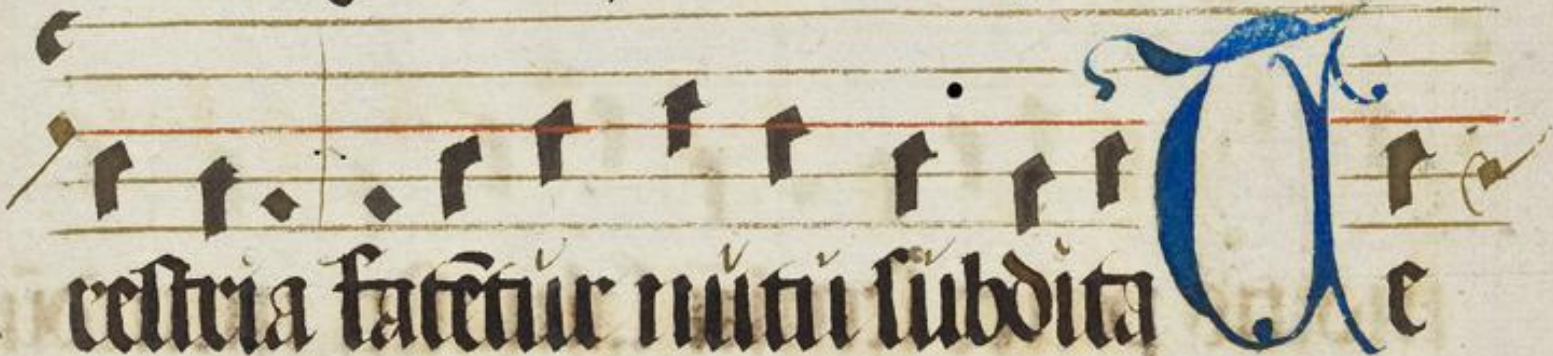 restria fatētur nutu subdita Te